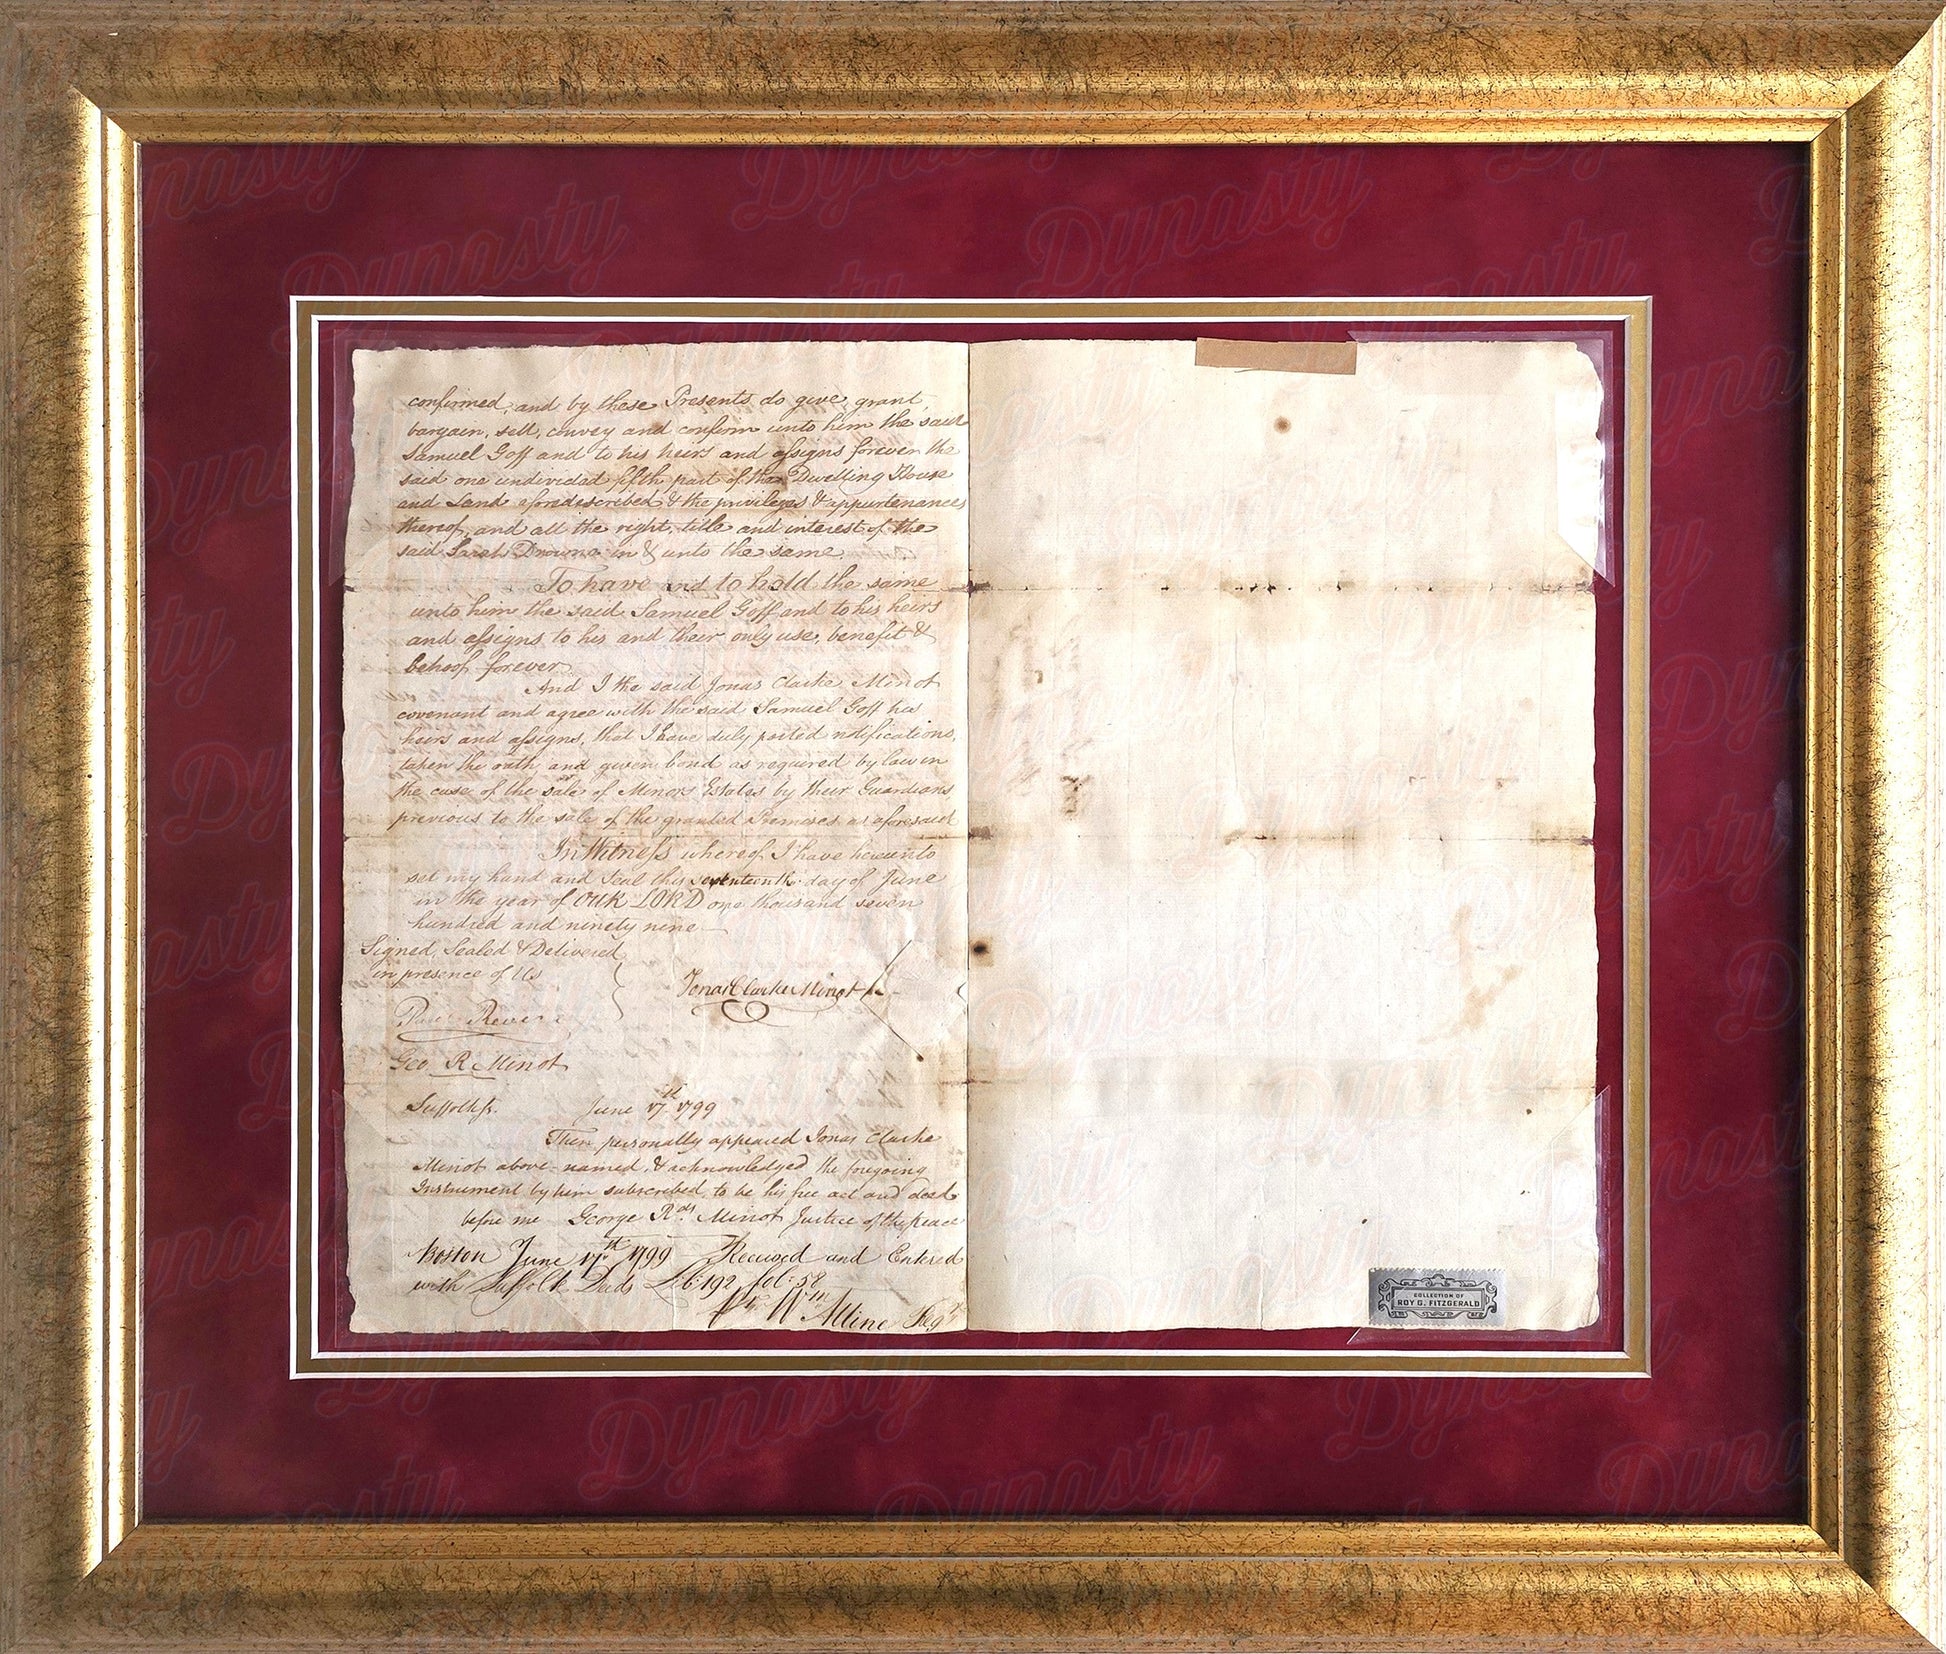 confirmed, and by these Presents do give, grant,
bargain, sell, convey and confirm unto him the said
Samuel Goff and to his heirs and assigns forever the
said one undivided fifth part of the Dwelling House
and Land aforedescribed & the privileges & appurtenances
thereof, and all the right, title and interest of the
said Sarah Drowne in & unto the same.
To have and to hold the same
unto him the said Samuel Goff and to his heirs
and assigns to his and their only use, benefit &
behoof forever.
And I the said Jonas Clarke Minot
covenant and agree with the said Samuel Goff his
heirs and assigns, that I have duly posted notifications,
taken the oath, and given bond as required by law in
the case of the sale of Minors Estates by their Guardians
previous to the sale of the granted Premises as aforesaid
In Witness whereof I have hereunto
set my hand and Seal this seventeenth day of June
in the year of OUR LORD one thousand seven
hundred and ninety nine
Signed, Sealed & Delivered
in presence of Us
Jonas Clarke Minot
Paul Revere
Geo. R. Minot
Suffolk ss. June 17th 1799
Then personally appeared Jonas Clarke
Minot above-named, & acknowledged the foregoing
Instrument by him subscribed, to be his free act and deed
before me George Rds. Minot Justice of the peace
Boston June 17th 1799 Received and Entered
with Suffolk Deeds Lib: 192. fol: 58
Wm Alline Regr
COLLECTION OF
ROY G. FITZGERALD
Dynasty